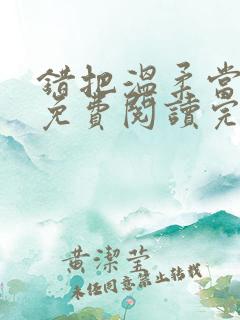 錯把溫柔當
免費閱讀完
黃潔瑩
未经同意禁止转载